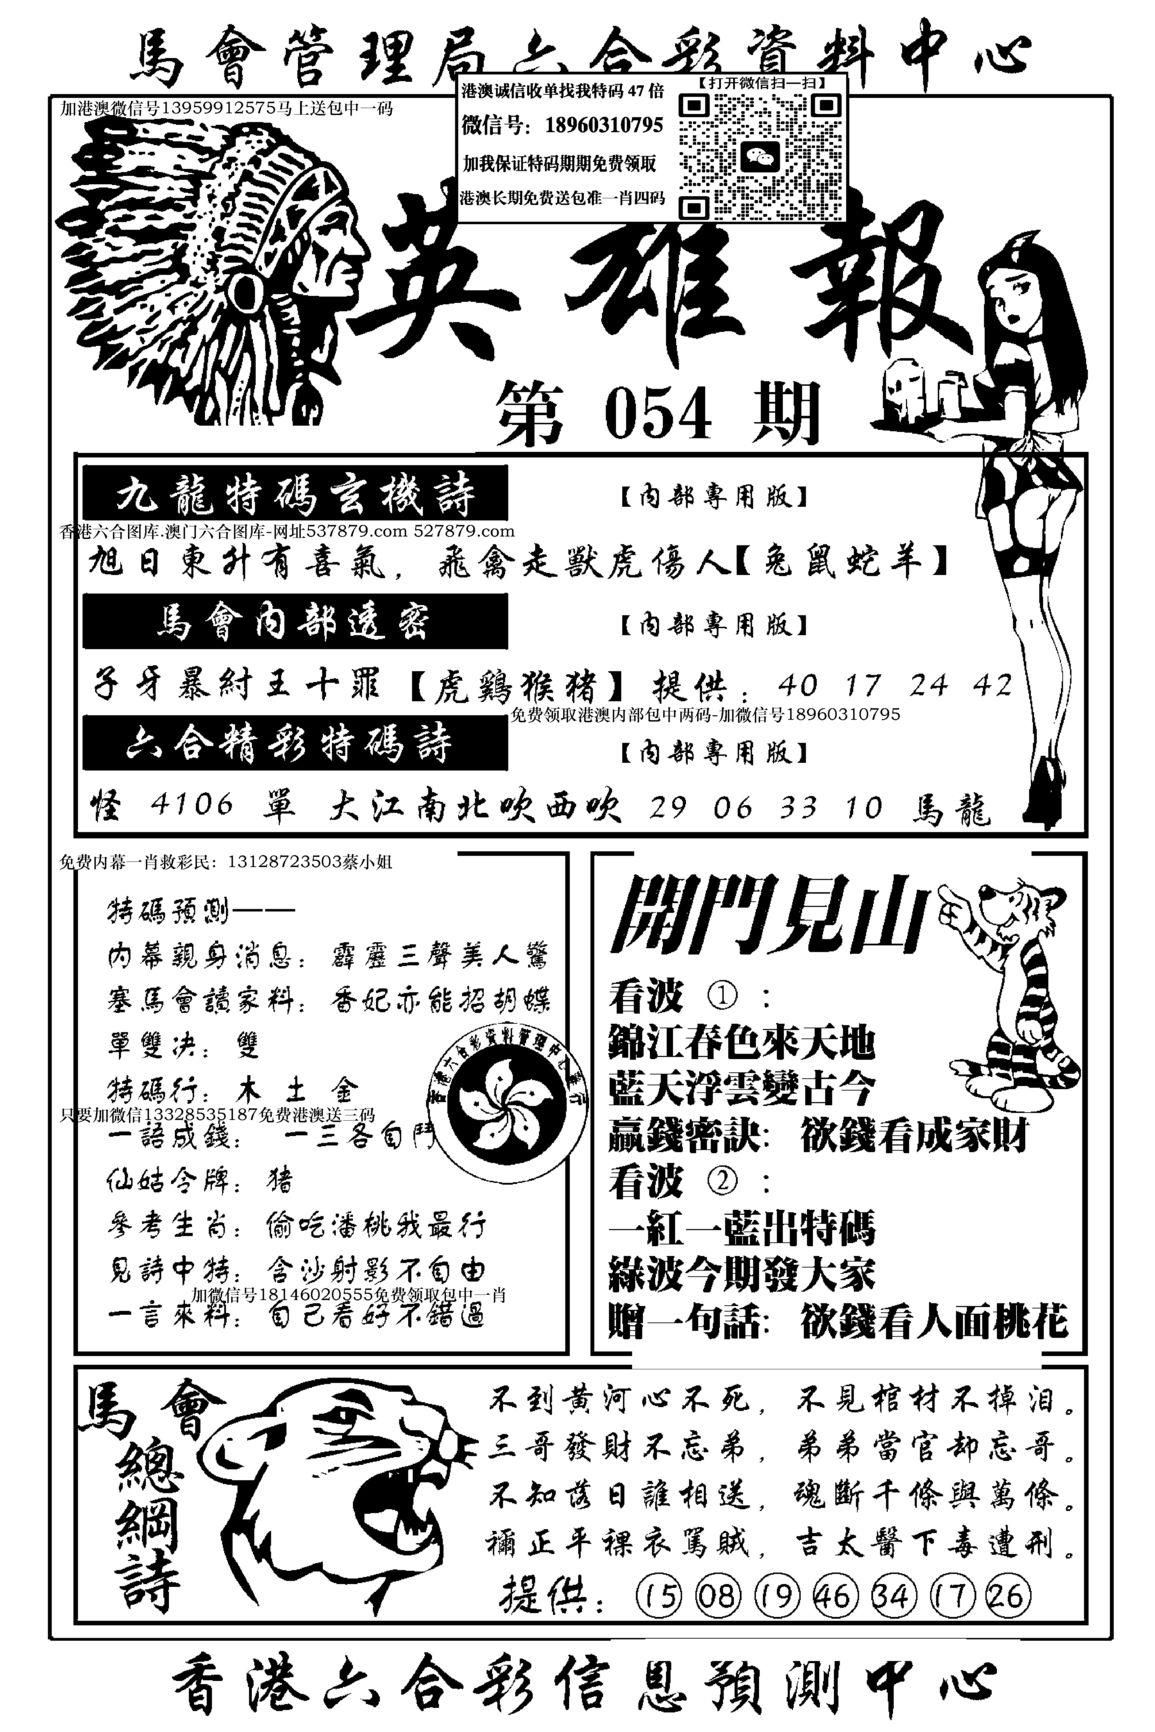 馬會管理局六合彩資料中心
【打开微信扫一扫】
港澳诚信收单找我特码 47 倍
加港澳微信号13959912575马上送包中一码
微信号：18960310795
加我保证特码期期免费领取
港澳长期免费送包准一肖四码
英雄報
第 054 期
九龍特碼玄機詩
【内部專用版】
香港六合图库.澳门六合图库-网址537879.com 527879.com
旭日東升有喜氣，飛禽走獸虎傷人【兔鼠蛇羊】
馬會内部透密
【内部專用版】
子牙暴紂王十罪【虎鷄猴猪】提供：40 17 24 42
免费领取港澳内部包中两码-加微信号18960310795
六合精彩特碼詩
【内部專用版】
怪 4106 單 大江南北吹西吹 29 06 33 10 馬龍
免费内幕一肖救彩民：13128723503蔡小姐
特碼預測——
内幕親身消息：霹靂三聲美人驚
塞馬會讀家料：香妃亦能招胡蝶
單雙决：雙
特碼行：木 土 金
只要加微信13328535187免费港澳送三码
一語成錢：一三各自鬥
仙姑令牌：猪
參考生肖：偷吃潘桃我最行
見詩中特：含沙射影不自由
加微信号18146020555免费领取包中一肖
一言來料：自己看好不錯過
香港六合彩資料管理中心發行
開門見山
看波 ①：
錦江春色來天地
藍天浮雲變古今
贏錢密訣：欲錢看成家財
看波 ②：
一紅一藍出特碼
綠波今期發大家
贈一句話：欲錢看人面桃花
馬會
總綱詩
不到黄河心不死，不見棺材不掉泪。
三哥發財不忘弟，弟弟當官却忘哥。
不知落日誰相送，魂斷千條與萬條。
禰正平裸衣罵賊，吉太醫下毒遭刑。
提供：15 08 19 46 34 17 26
香港六合彩信息預測中心